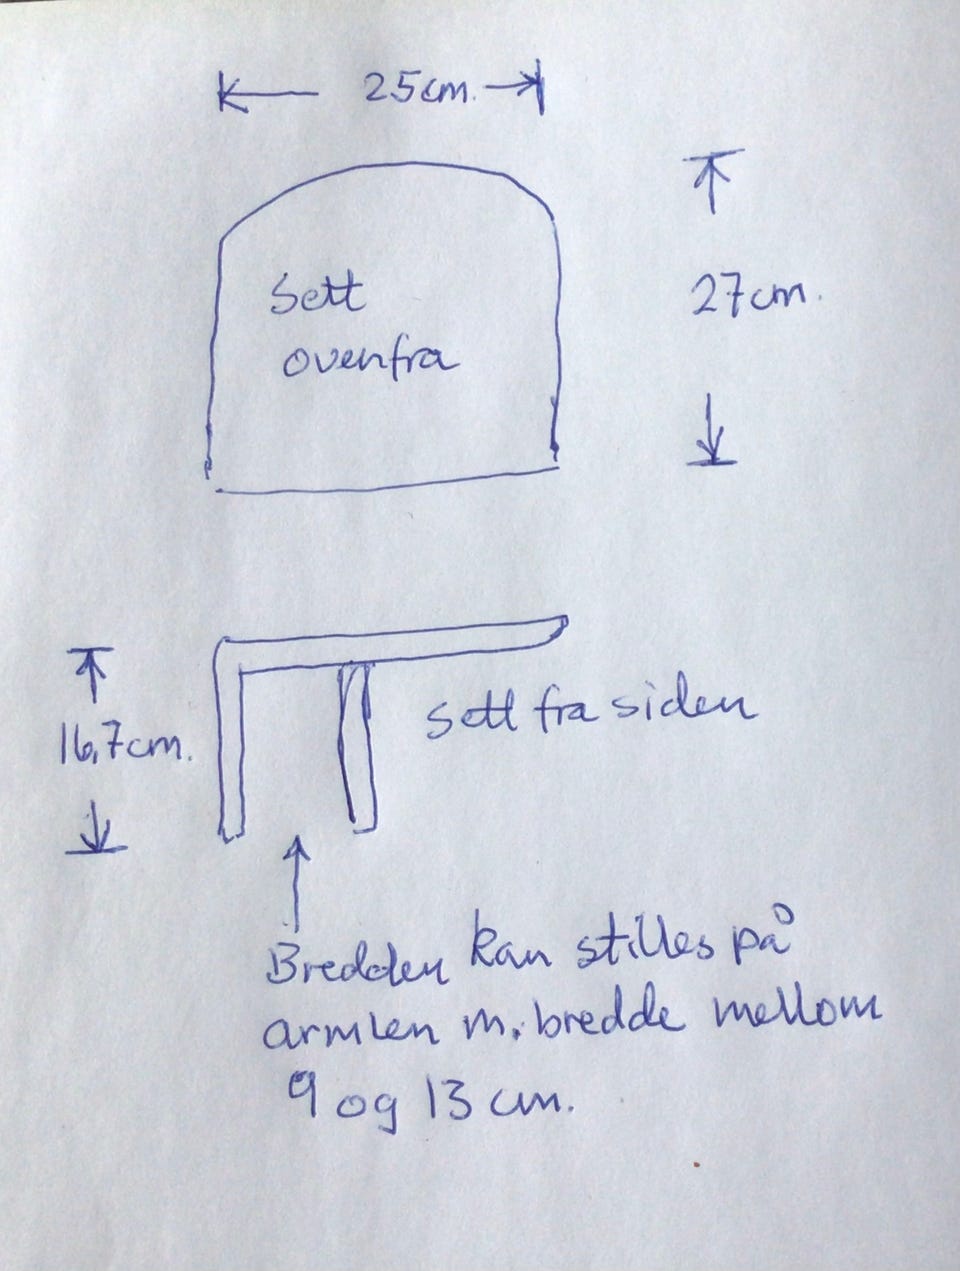 25cm.
Sett
ovenfra
27cm.
16,7cm.
Sett fra siden
Bredden kan stilles på
armlen m. bredde mellom
9 og 13 cm.